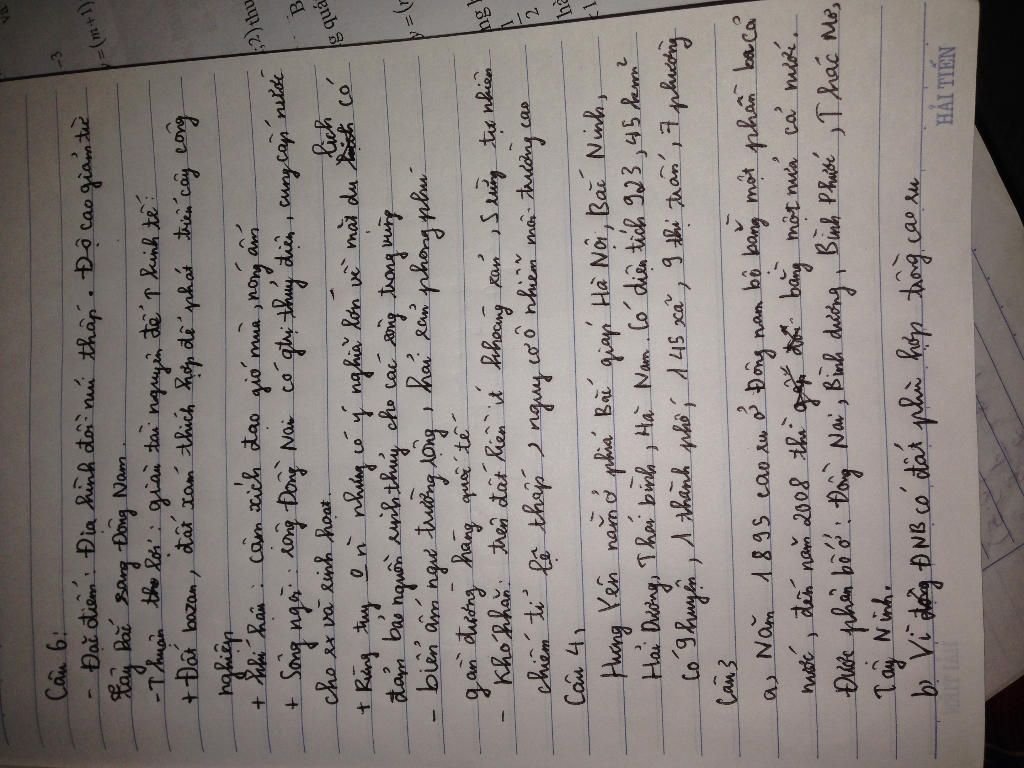 Câu 6:
- Đặc điểm: Địa hình đồi núi thấp. Độ cao giảm từ
Tây bắc sang Đông Nam.
- Thuận lợi: giàu tài nguyên để P kinh tế:
+ Đất bazan, đất xám thích hợp để phát triển cây công
nghiệp
+ Khí hậu: cận xích đạo gió mùa, nóng ẩm
+ Sông ngòi: sông Đồng Nai có gtrị thủy điện, cung cấp nước
cho sx và sinh hoạt.
+ Rừng tuy o n nhưng có ý nghĩa lớn về mặt du lịch có
đảm bảo nguồn sinh thủy cho các sông trong vùng
- biển ấm ngư trường rộng, hải sản phong phú
gần đường hàng quốc tế
- Khó khăn: trên đất liền ít khoáng sản, S rừng tự nhiên
chiếm tỉ lệ thấp, nguy cơ ô nhiễm môi trường cao
Câu 4,
Hưng Yên nằm ở phía Bắc giáp Hà Nội, Bắc Ninh,
Hải Dương, Thái bình, Hà Nam. Có diện tích 923,45 ham²
Có 9 huyện, 1 thành phố, 145 xã, 9 thị trấn, 7 phường
Câu 3
a, Năm 1895 cao su ở Đông nam bộ bằng một phần ba cả
nước, đến năm 2008 thì bằng một nửa cả nước.
Được phân bố ở: Đồng Nai, Bình dương, Bình Phước, Thác Mơ,
Tây Ninh.
b, Vì đông ĐNB có đất phù hợp trồng cao su
HẢI TIẾN
-3
y=(m+1)
;2) thu